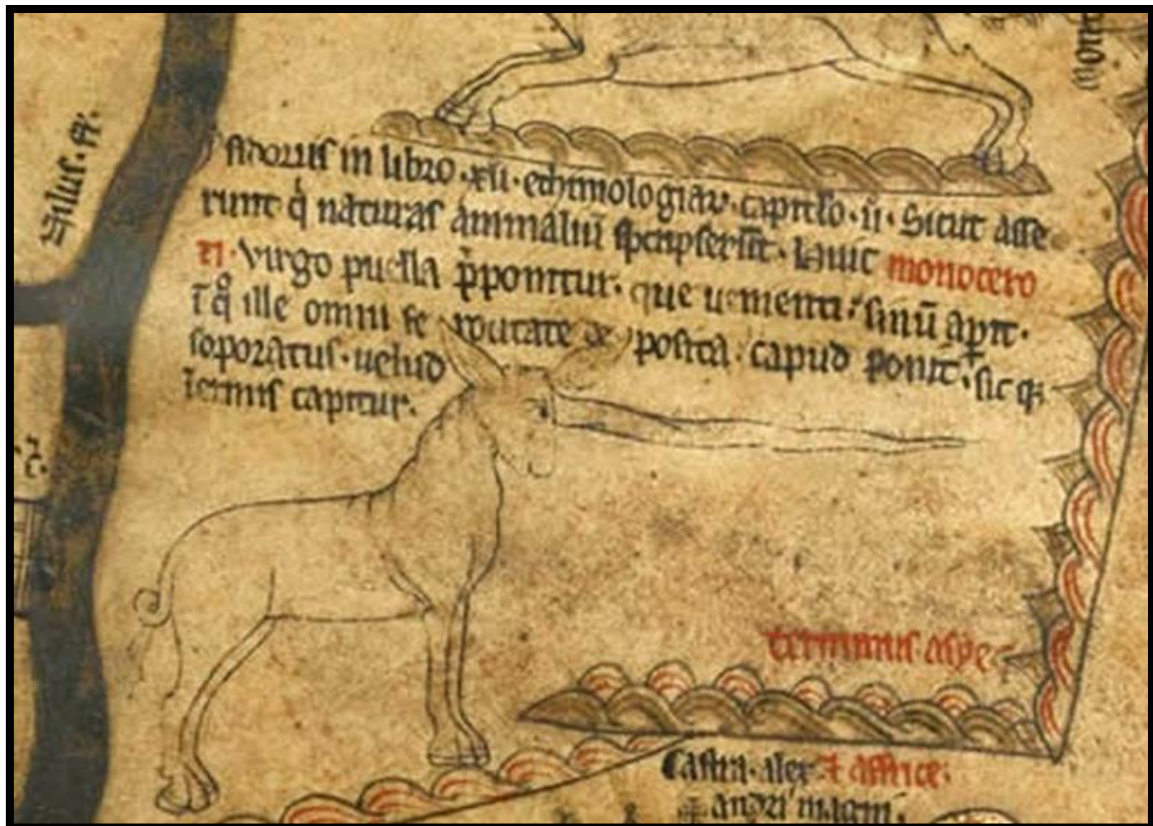 Nilus. fl'.
Mon
sidorus in libro .xii. ethimologiar'. capitulo .ii. Sicut asse
runt q̇ naturas animaliū scripserūt. Huic monocero
ti. Virgo puella p̄ponitur. que uenienti sinū aperit.
ī q° ille omni ferocitate deposita. capud ponit. sic q;
soporatus. uelud
īermis capitur.
terminus asye
Castra. alex et affrice:
andri magni.